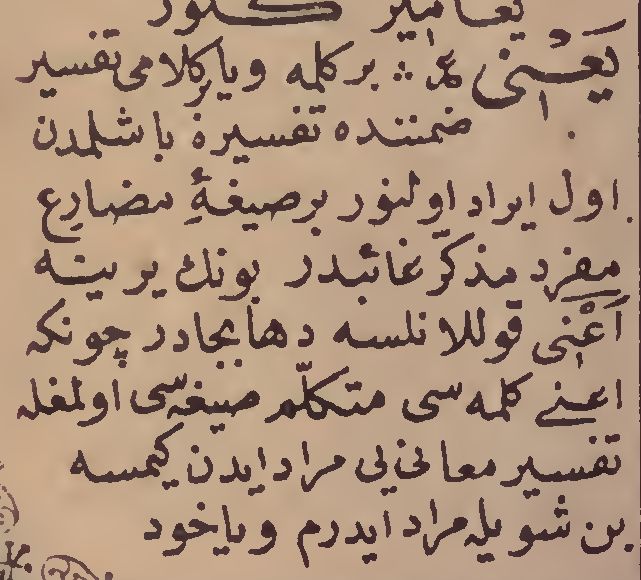 تعابير كلور
يَعْنِى ؏ ∴ بر كلمه ويا بر كلامى تفسير
ضمننده تفسيره باشلمدن
اول ايراد اولنور بر صيغهٔ مضارع
مفرد مذكّر غائبدر بونك يرينه
اَعْنِى قوللانلسه دها بجادر چونكه
اعنے كلمه سى متكلّم صيغه سى اولمغله
تفسير معانى يى مراد ايدن كيمسه
بن شويله مراد ايدرم ويا خود